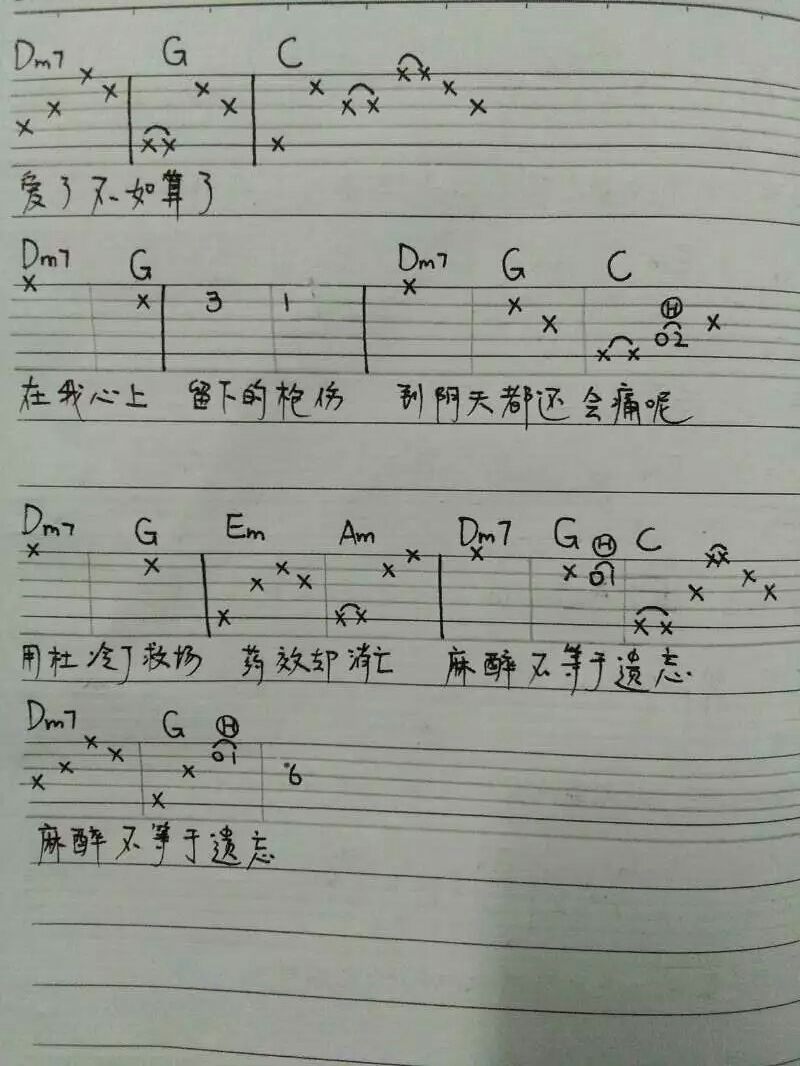 Dm7 G C
爱了不如算了
Dm7 G 3 1 Dm7 G C
H
02
在我心上 留下的枪伤 到阴天都还会痛呢
Dm7 G Em Am Dm7 G H C
01
用杜冷丁救场 药效却消亡 麻醉不等于遗忘
Dm7 G H
01
6
麻醉不等于遗忘